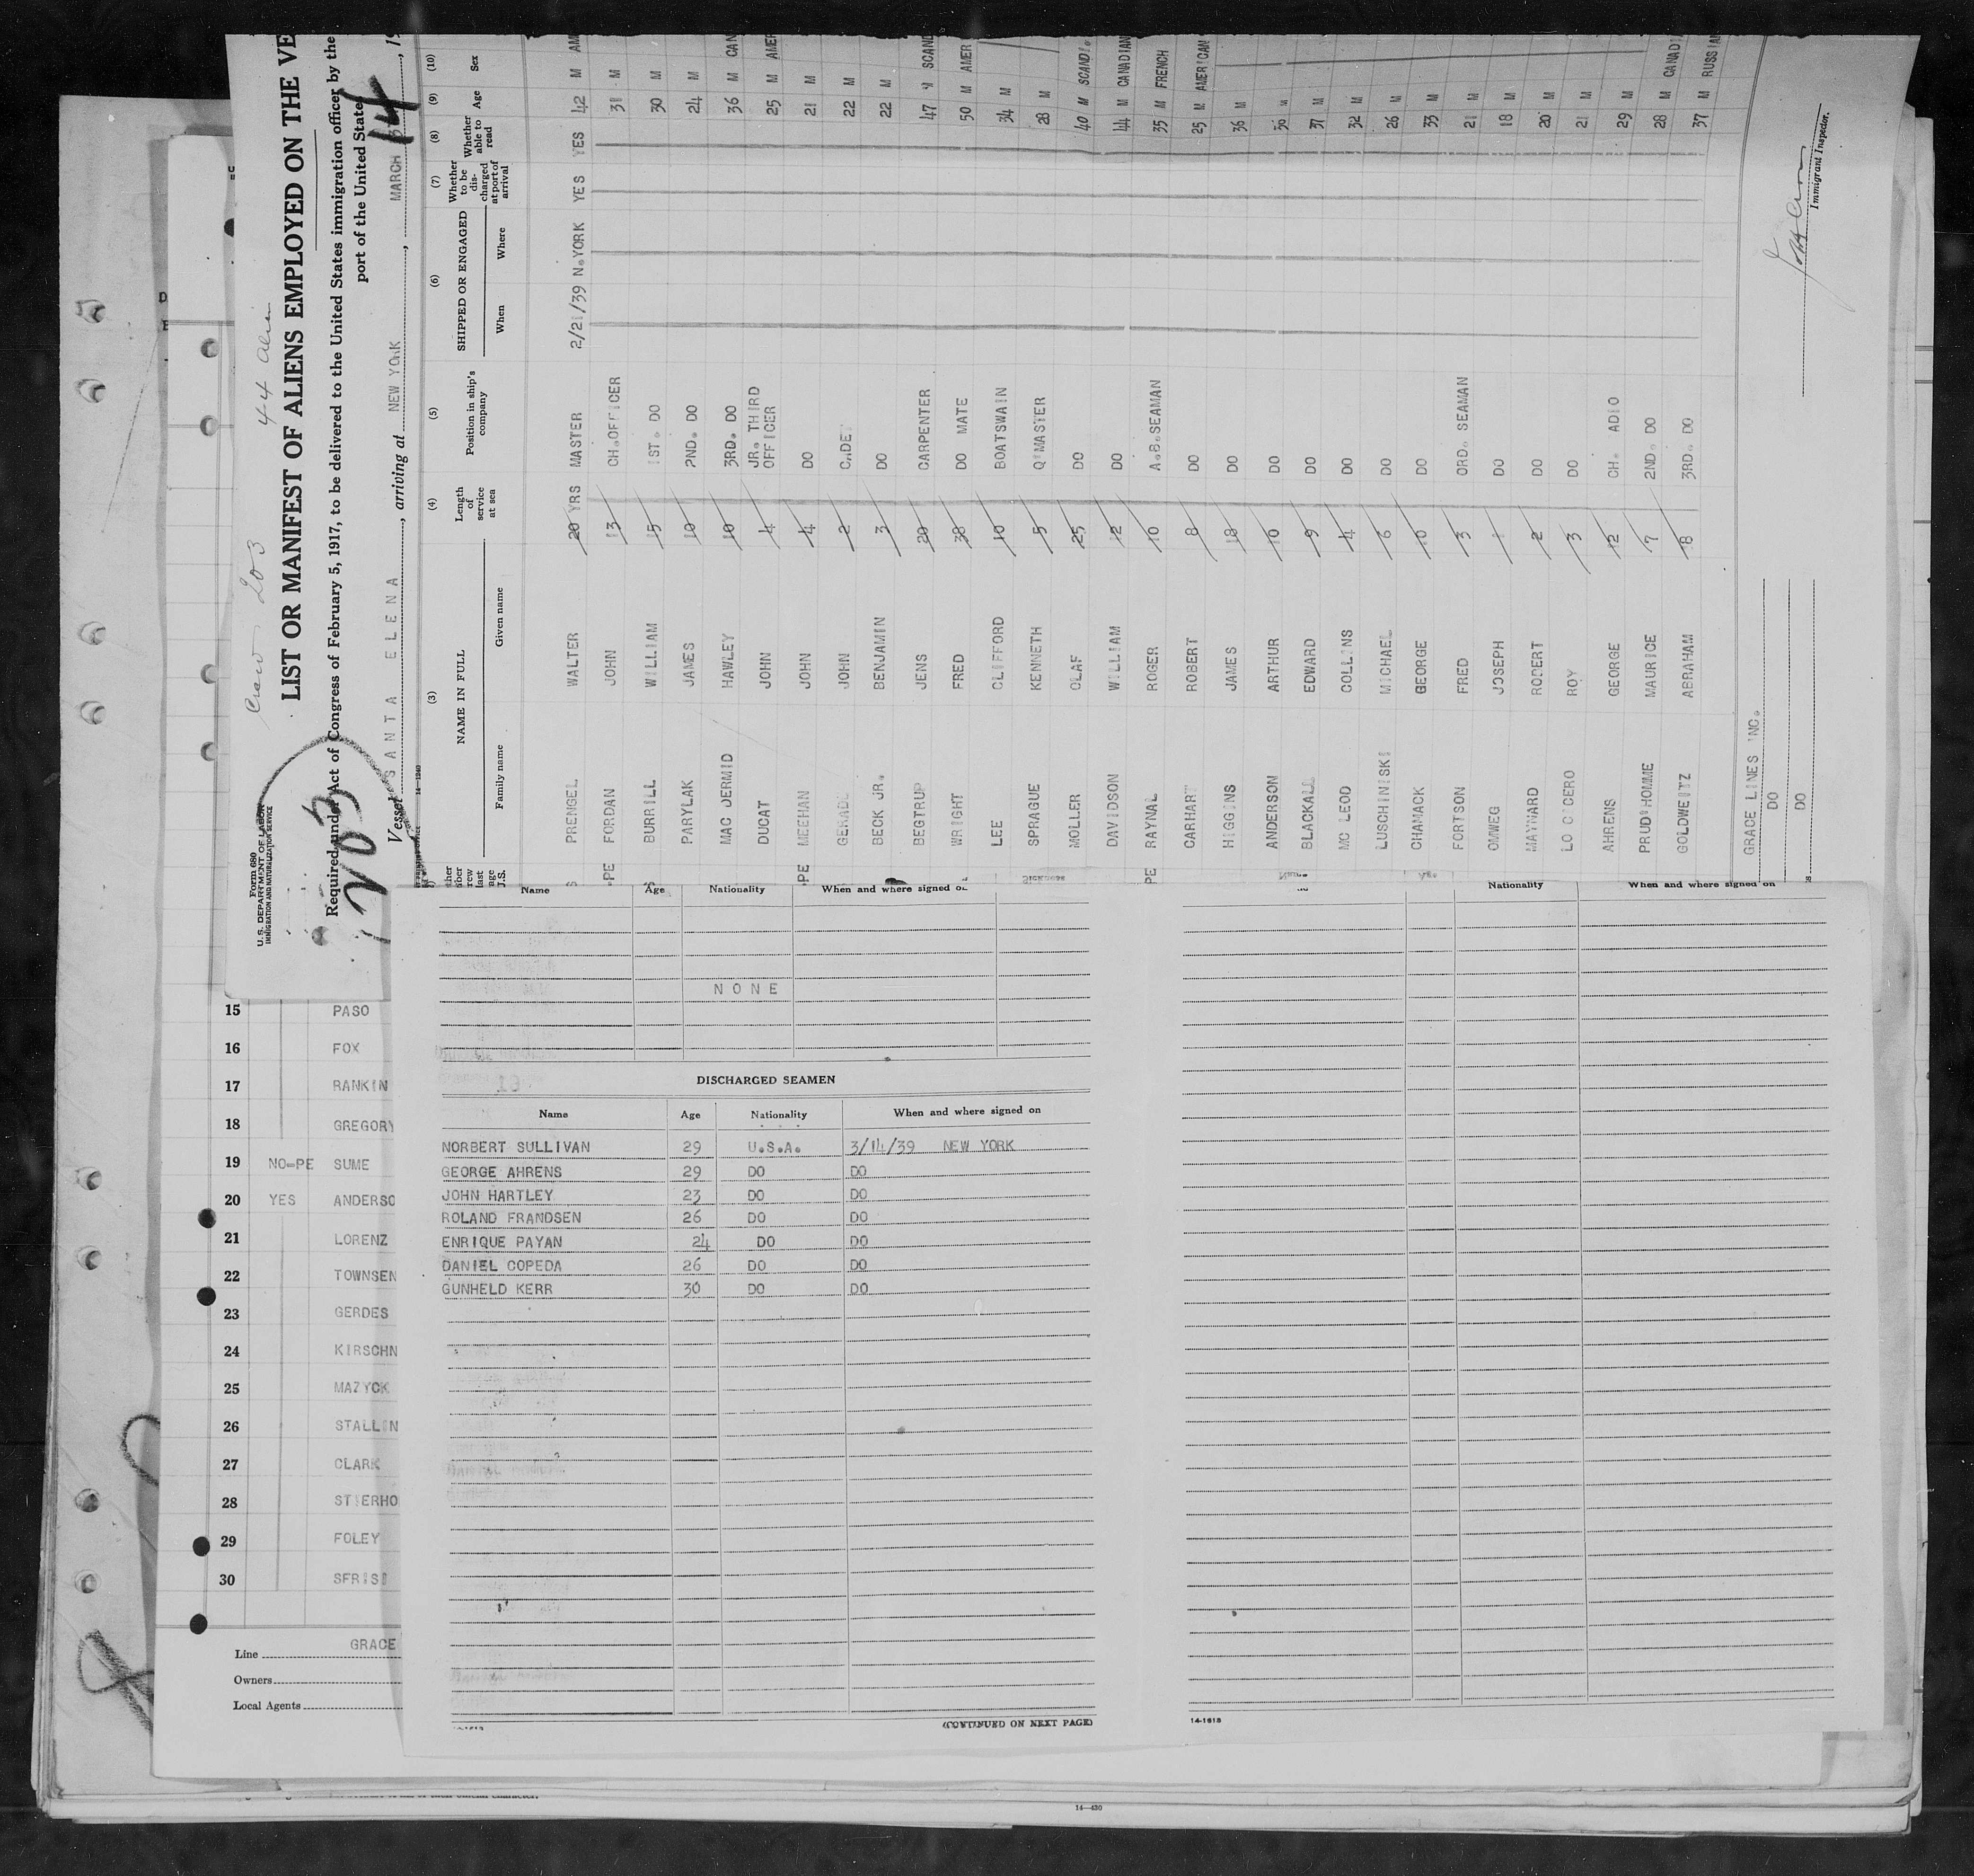 Form 680
U. S. DEPARTMENT OF LABOR
IMMIGRATION AND NATURALIZATION SERVICE
Crew 203
44 alien
203
LIST OR MANIFEST OF ALIENS EMPLOYED ON THE VE
Required under Act of Congress of February 5, 1917, to be delivered to the United States immigration officer by the
port of the United States
Vessel SANTA ELENA, arriving at NEW YORK, MARCH 14, 19
14-1240
(3) (4) (5) (6) (7) (8) (9) (10)
NAME IN FULL
Family name Given name
Length of service at sea
Position in ship's company
SHIPPED OR ENGAGED
When Where
Whether to be discharged at port of arrival
Whether able to read
Age Sex
PRENGEL WALTER 20 YRS MASTER 2/21/39 N.YORK YES YES 42 M AME
PE FORDAN JOHN 13 CH.OFFICER 31 M
BURRILL WILLIAM 15 1ST. DO 30 M
PARYLAK JAMES 10 2ND. DO 24 M
MAC DERMID HAWLEY 10 3RD. DO 36 M CAN
DUCAT JOHN 4 JR. THIRD OFFICER 25 M AMER
PE MEEHAN JOHN 4 DO 21 M
JOHN 2 CADET 22 M
BECK JR. BENJAMIN 3 DO 22 M
BEGTRUP JENS 20 CARPENTER 47 M SCAND
WRIGHT FRED 38 DO MATE 50 M AMER
LEE CLIFFORD 10 BOATSWAIN 34 M
SPRAGUE KENNETH 5 Q'MASTER 28 M
MOLLER OLAF 25 DO 40 M SCANDI.
DAVIDSON WILLIAM 12 DO 44 M CANADIAN
PE RAYNAL ROGER 10 A.B.SEAMAN 35 M FRENCH
CARHART ROBERT 8 DO 25 M AMERICAN
HIGGINS JAMES 18 DO 36 M
ANDERSON ARTHUR 10 DO 36 M
BLACKALL EDWARD 9 DO 37 M
MC LEOD COLLINS 4 DO 32 M
LUSCHINISKI MICHAEL 6 DO 26 M
CHAMACK GEORGE 10 DO 33 M
FORTSON FRED 3 ORD. SEAMAN 21 M
OMWEG JOSEPH 1 DO 18 M
MAYNARD ROBERT 2 DO 20 M
LO CICERO ROY 3 DO 21 M
AHRENS GEORGE 12 CH. ADIO 29 M
PRUD'HOMME MAURICE 7 2ND. DO 28 M CANADI
GOLDWEITZ ABRAHAM 18 3RD. DO 37 M RUSSIAN
GRACE LINES INC.
DO
DO
Immigrant Inspector.
15 PASO
16 FOX
17 RANKIN
18 GREGORY
19 NO=PE SUME
20 YES ANDERSO
21 LORENZ
22 TOWNSEN
23 GERDES
24 KIRSCHN
25 MAZYCK
26 STALLIN
27 CLARK
28 STIERHO
29 FOLEY
30 SFRISI
Line GRACE
Owners
Local Agents
Name Age Nationality When and where signed on
NONE
DISCHARGED SEAMEN
Name Age Nationality When and where signed on
NORBERT SULLIVAN 29 U.S.A. 3/14/39 NEW YORK
GEORGE AHRENS 29 DO DO
JOHN HARTLEY 23 DO DO
ROLAND FRANDSEN 26 DO DO
ENRIQUE PAYAN 24 DO DO
DANIEL COPEDA 26 DO DO
GUNHELD KERR 30 DO DO
(CONTINUED ON NEXT PAGE)
Nationality When and where signed on
14-1618
14-430